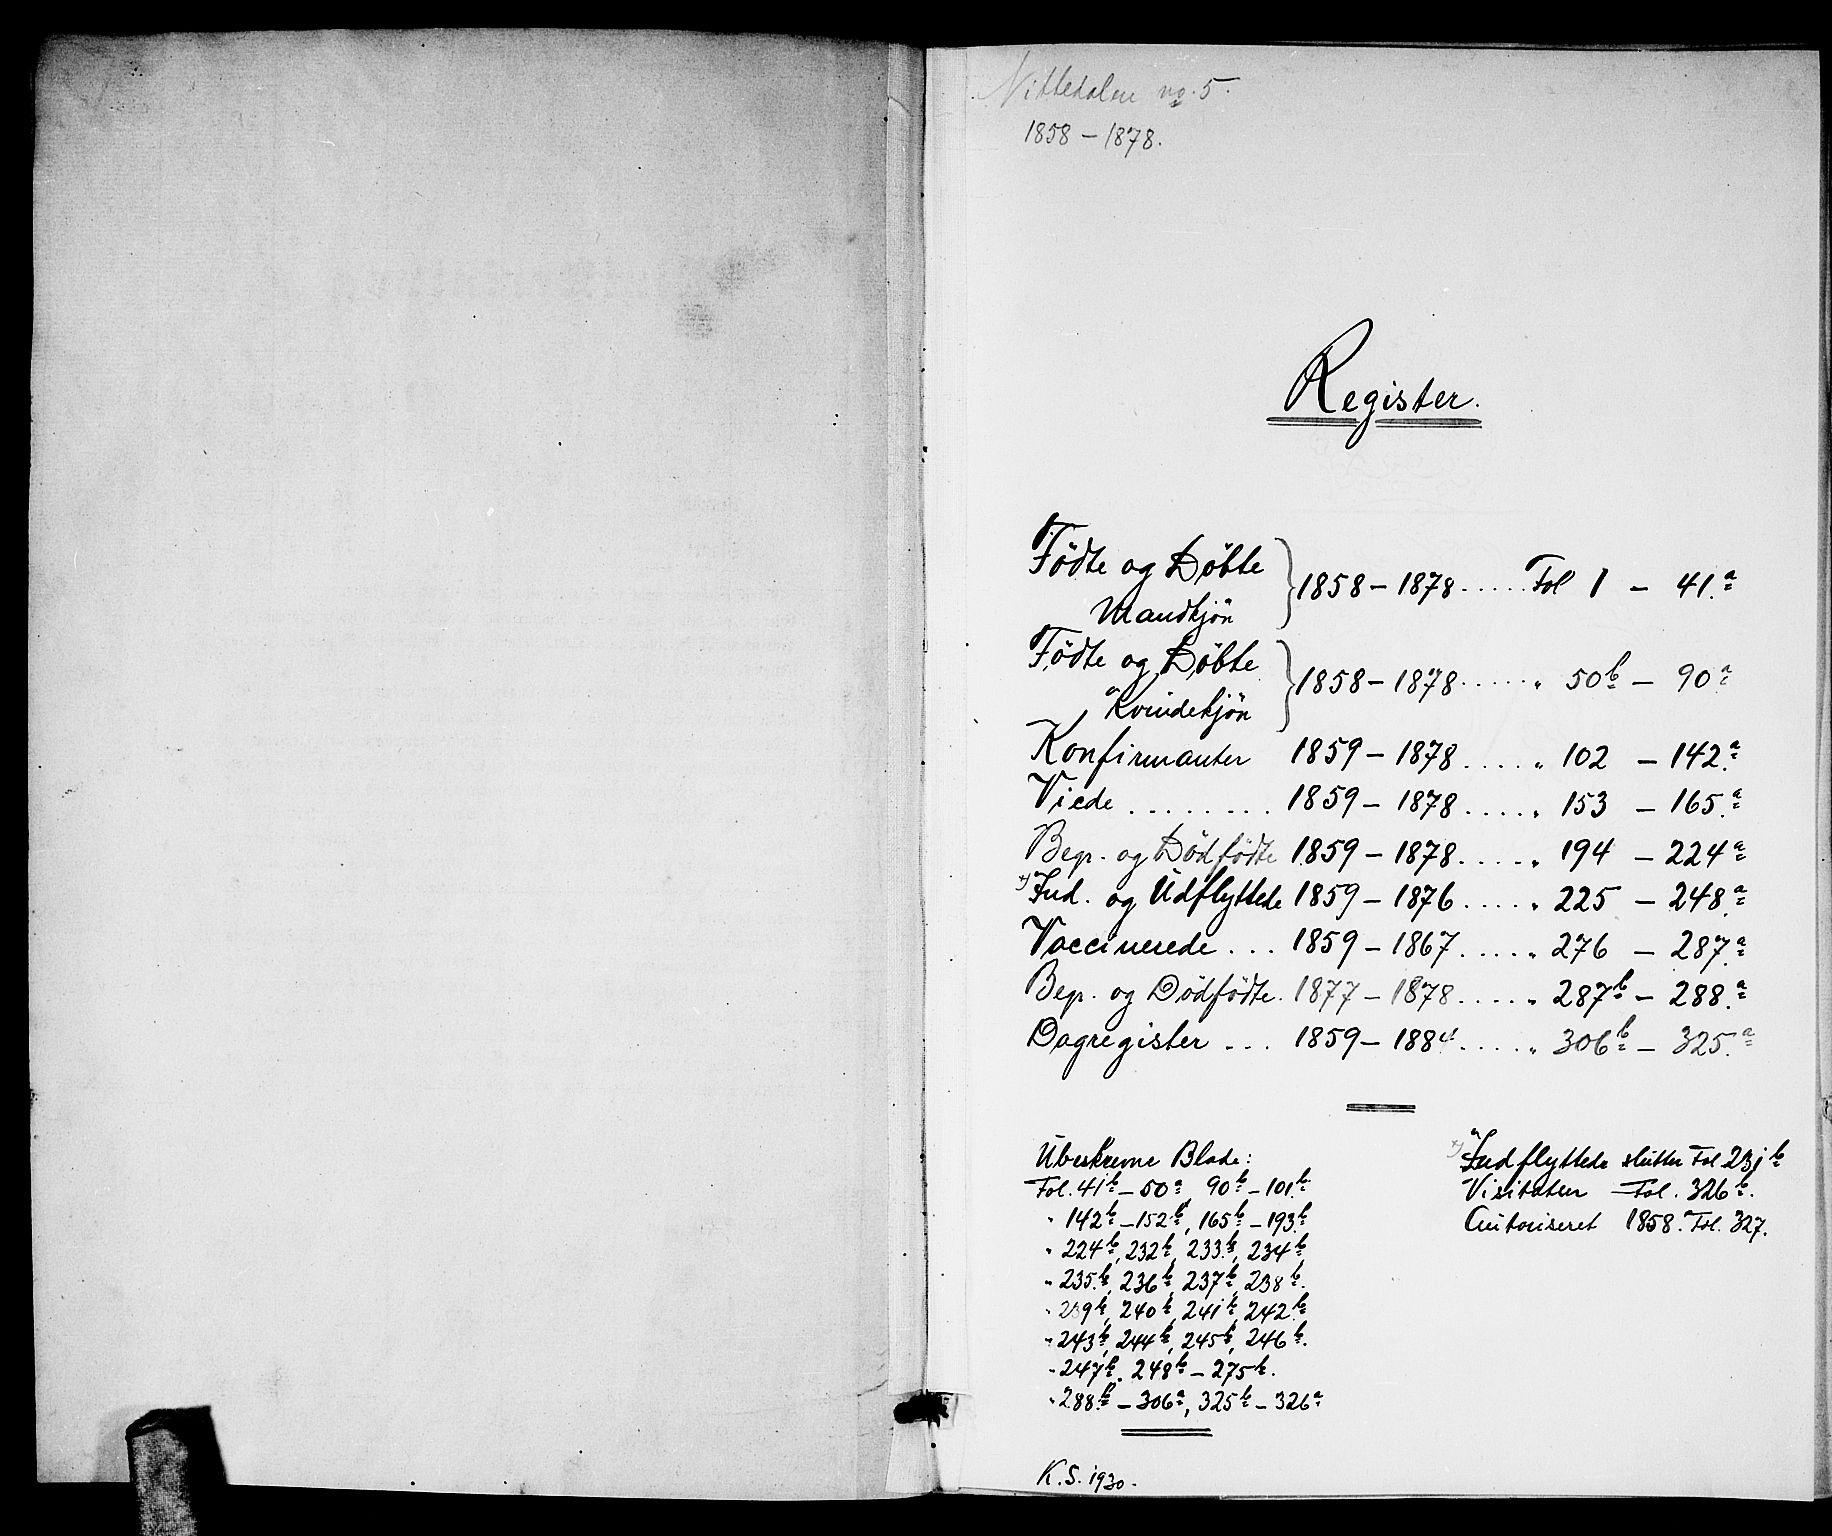 Nittedalen no. 5.
1858 – 1878.
Register.
Födte og Döbte Mandkjön } 1858 – 1878 ..... Fol 1 – 41.a
Födte og Döbte Kvindekjön } 1858 – 1878 ..... " 50b – 90a
Konfirmanter 1859 – 1878 ..... " 102 – 142.a
Viede ........ 1859 – 1878 ..... " 153 – 165.a
Begr. og Dödfödte 1859 – 1878 ..... " 194 – 224a
x) Ind. og Udflyttede 1859 – 1876 ..... " 225 – 248.a
Vaccinerede ... 1859 – 1867 ..... " 276 – 287.a
Begr. og Dödfödte. 1877 – 1878 ..... " 287b – 288.a
Dagregister ... 1859 – 1884 ..... " 306b – 325.a
Ubeskrevne Blade:
Fol. 41b – 50a, 90b – 101.b
" 142b – 152b, 165b – 193.b
" 224b, 232b, 233.b, 234b
" 235.b, 236b, 237b, 238b.
" 239b, 240b, 241b, 242.b
" 243b, 244b, 245b, 246b.
" 247b, 248b – 275b.
" 288b – 306a, 325b – 326a
x) Indflyttede slutter Fol 231b
Visitatser Fol. 326b.
Autoriseret 1858. Fol. 327.
K. S. 1930.